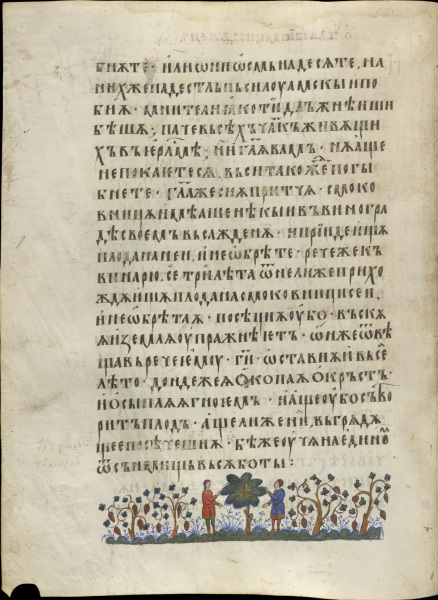 бнѫте· и҆ли ѡ҆ни ѡ҆смь на десѧте, на
нихже падестльпь силоуамскыи и по
биѧ· мнители ꙗ҆ко ти длъжнѣиши
бѣшѧ; паче въсѣхъ чл҃къ живѫщи
хъ въ і҆ер҇лмѣ; ни гл҃ѧ вамъ· нѫ аще
не покаетесѧ вьси такожⷣе погы
бнете· гл҃аше сиѧ притчѧ· смоко
вницѧ и҆мѣаше нѣкыи въ виногра
дѣ своемъ въсаждена· и прїиде ищѧ
плода на неи, и҆ не ѡ҆брѣте· рече же къ
винарю. се три лѣта ѿнелиже прихо
ждѫ ищѧ плода на смоковници сеи,
и҆ не ѡ҆брѣтаѧ· посѣци ѧ оу҆бо· въскѫ
ѧ и҆ землѧ оупражнѣеть· ѡ҆нже ѿвѣ
щавь рече емоу· г҃и· ѡ҆стави ѧ и въ се
лѣто· дондеже ѧ ѻ҆копаѧ ѻ҆крьстъ·
и ѻ҆сыплѧ ѧ гноемъ· и аще оубо сътво
ритъ плодъ· аще ли же ни, въ грѧдѫ
щее посѣчеши ѧ· бѣже оучѧ на единоⷨ
ѿ сънмищь въ сѫботы: